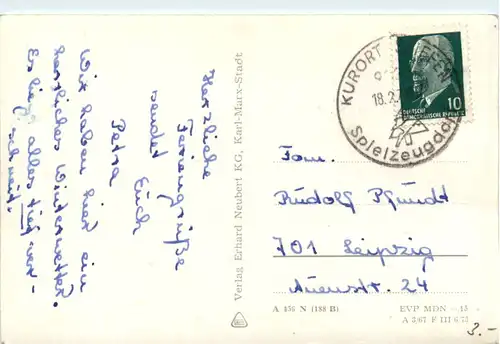 Herzliche
Feriengrüße
sendet Euch
Petra
Wir haben hier ein
herrliches Winterwetter.
Es liegt alles tief ver-
schneit.
Verlag Erhard Neubert KG, Karl-Marx-Stadt
KURORT
18.2.
Spielzeugdo
DEUTSCHE
DEMOKRATISCHE REPUBLIK
10
Fam.
Rudolf Pfundt
701 Leipzig
Auenstr. 24
A 456 N (188 B)
EVP MDN –.15
A 3/67 F III 6/73
3.-